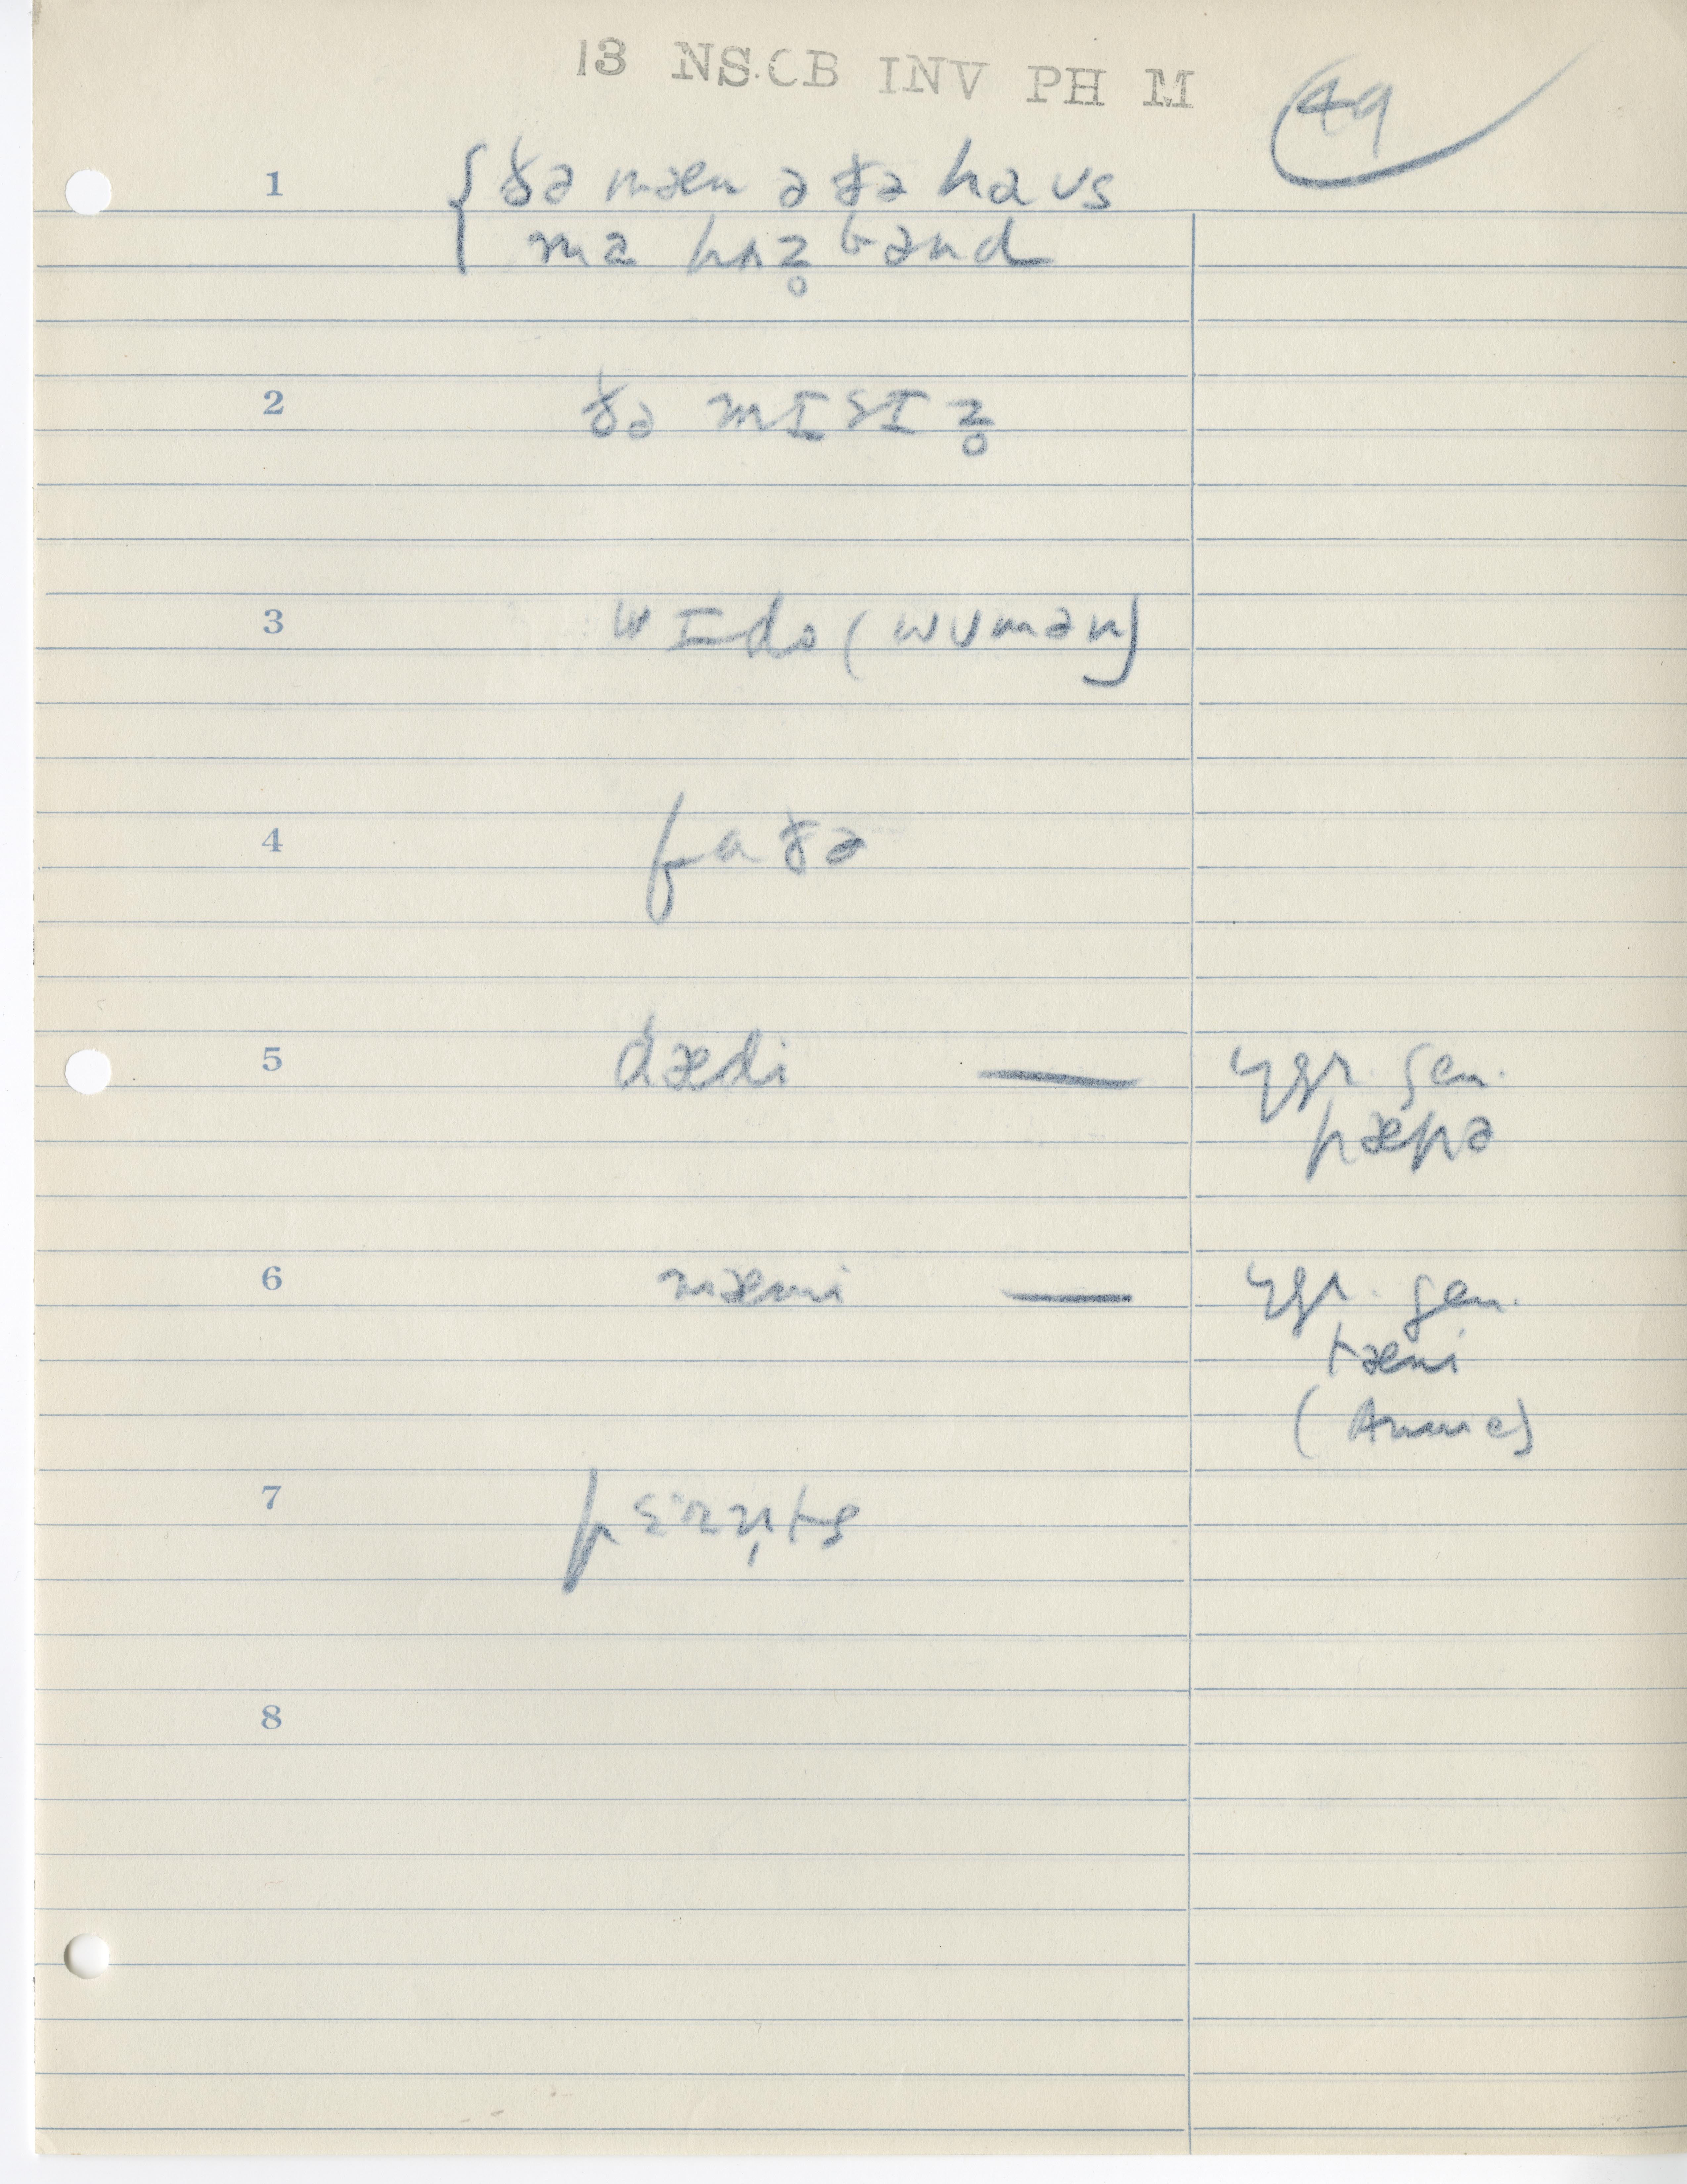 13 NSCB INV PH M
49
1 { ðə mæn ə ðə haʊs
ma hʌz̥bənd
2 ðə mɪsɪz̥
3 wɪdə (wʊmən)
4 faðə
5 dædi — ygr. gen.
pæpə
6 mæmi — ygr. gen.
tæmi
(Annie)
7
8